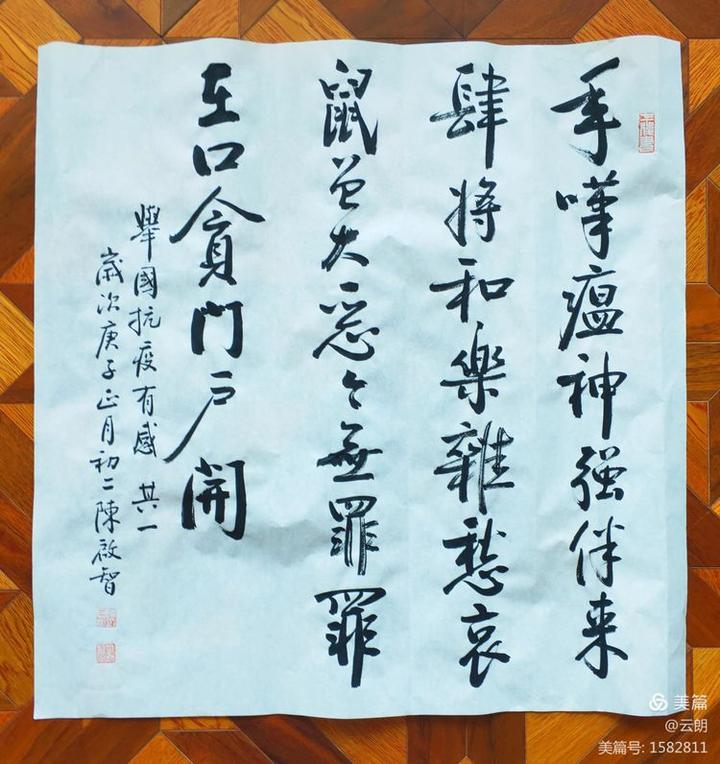 年嘩瘟神强伴来
肆將和樂雜愁哀
鼠曾大惡々無罪罪
在口貪門戶開
舉國抗疫有感 其一
歲次庚子正月初二陳啟智
美篇
@云朗
美篇号: 1582811